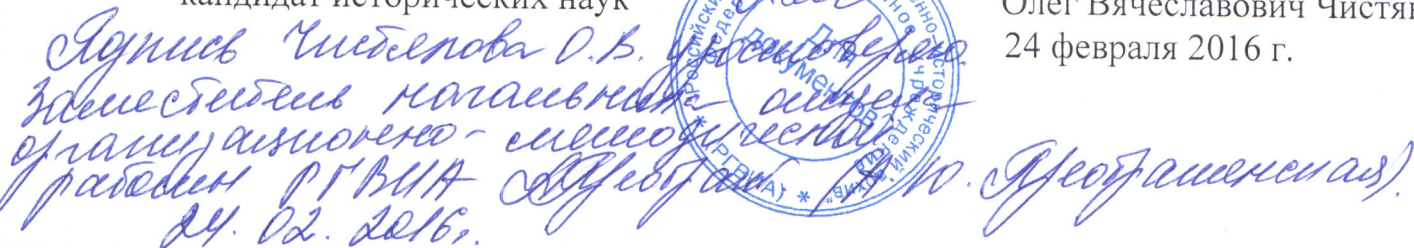 кандидат исторических наук
Олег Вячеславович Чистяк
24 февраля 2016 г.
Подпись Чистякова О.В. удостоверяю.
Заместитель начальника отдела
организационно-методической
работы РГВИА (Ю. Преображенская).
24.02.2016г.
Для документов
(РГВИА)